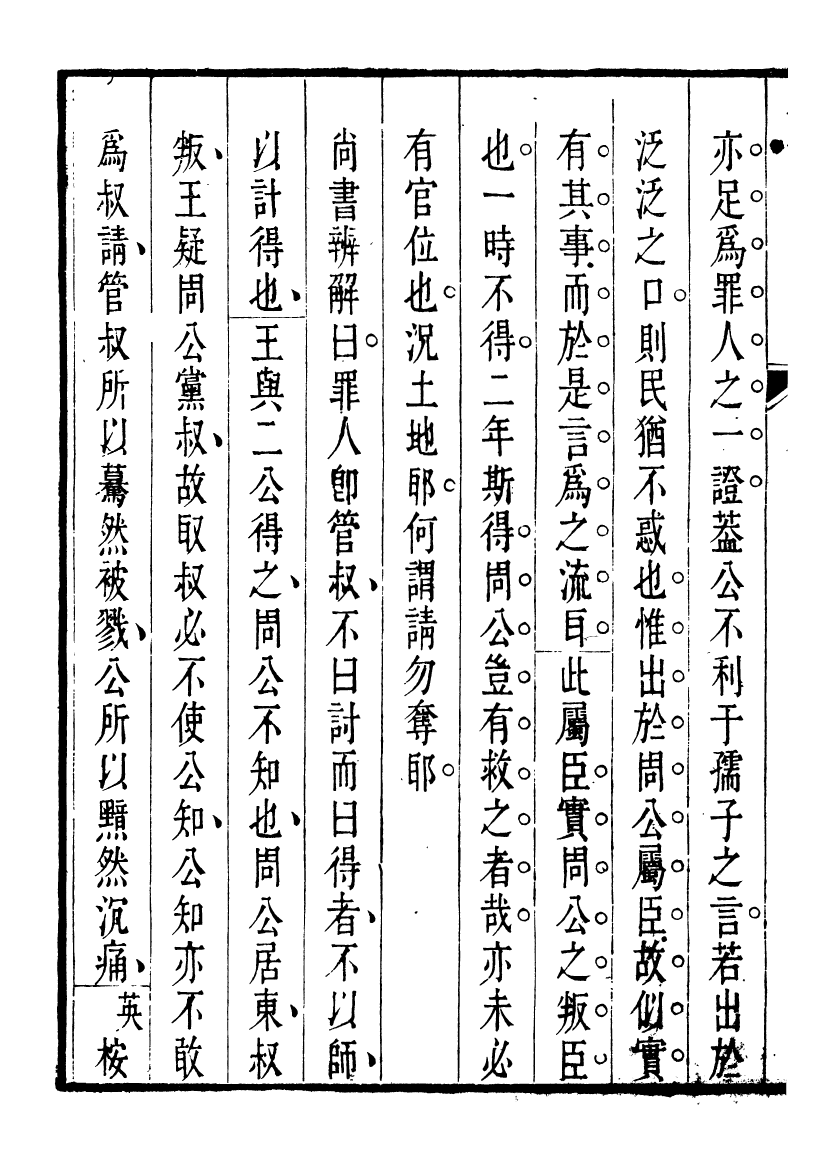 亦足爲罪人之一證葢公不利于孺子之言若出於
泛泛之口則民猶不惑也惟出於周公屬臣故似實
有其事而於是言爲之流耳此屬臣實周公之叛臣
也一時不得二年斯得周公豈有救之者哉亦未必
有官位也況土地耶何謂請勿奪耶
尚書辨解曰罪人卽管叔不曰討而曰得者不以師
以計得也王與二公得之周公不知也周公居東叔
叛王疑周公黨叔故取叔必不使公知公知亦不敢
爲叔請管叔所以驀然被戮公所以黯然沉痛英桉